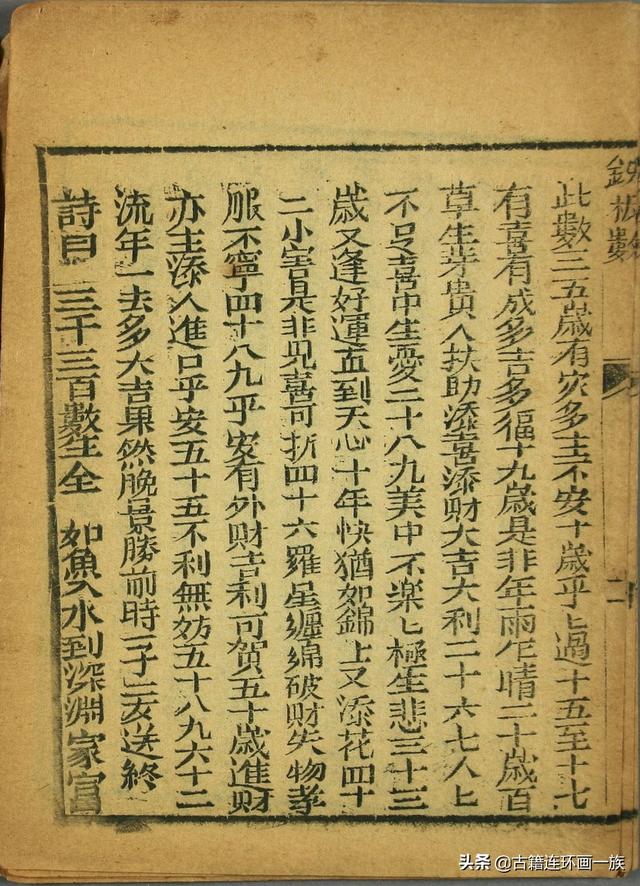 鉄板數
二十
此數三五歲有灾多主不安十歲乎匕過十五至十七
有喜有成多吉多福十九歲是非年雨乍晴二十歲百
草生芽貴人扶助添喜添財大吉大利二十六七人上
不足喜中生憂二十八九美中不樂匕極生悲三十三
歲又逢好運直到天心十年快猶如錦上又添花四十
二小害是非見喜可折四十六羅星纏綿破財失物孝
服不寧四十八九乎安有外財吉利可賀五十歲進財
亦主添人進口乎安五十五不利無妨五十八九六十二
流年一去多大吉果然晚景勝前時一子亡亥送終
詩曰 三千三百數生全 如魚入水到深淵家官
头条 @古籍连环画一族